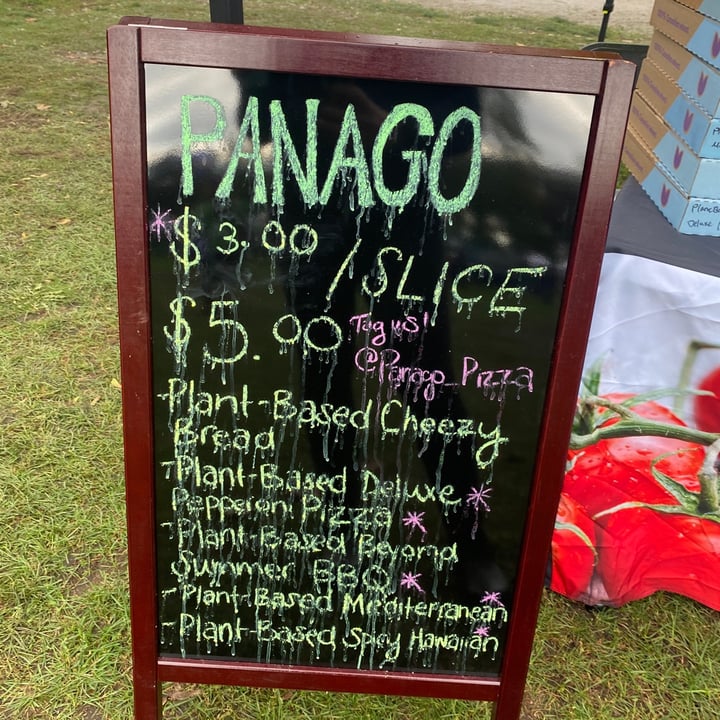 PANAGO
* $3.00 /SLICE
$5.00 Tag us!
@Panago_Pizza
-Plant-Based Cheezy
Bread
-Plant-Based Deluxe *
Pepperoni Pizza *
-Plant-Based Beyond
Summer BBQ *
-Plant-Based Mediterranean *
-Plant-Based Spicy Hawaiian *